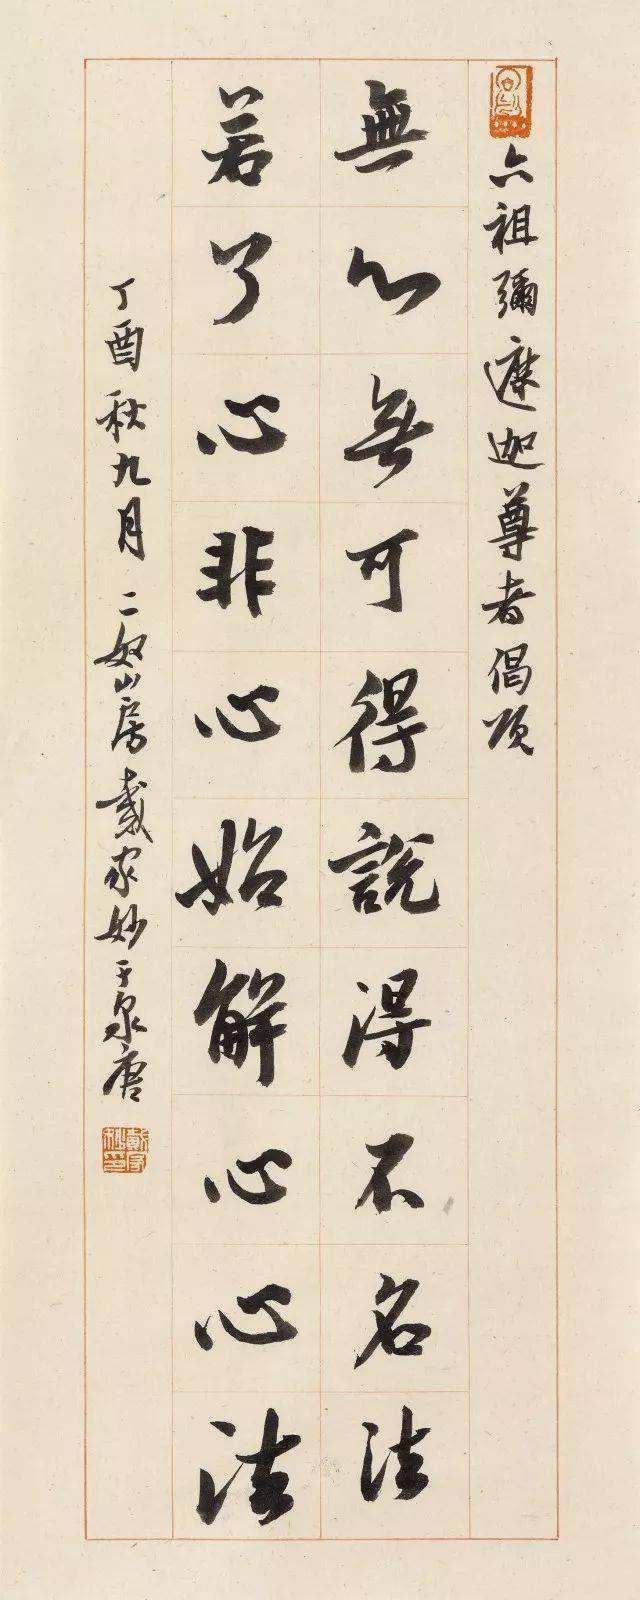 六祖彌遮迦尊者偈頌
無心無可得說得不名法
若了心非心始解心心法
丁酉秋九月二奴山房戴家妙于泉唐
戴家妙印